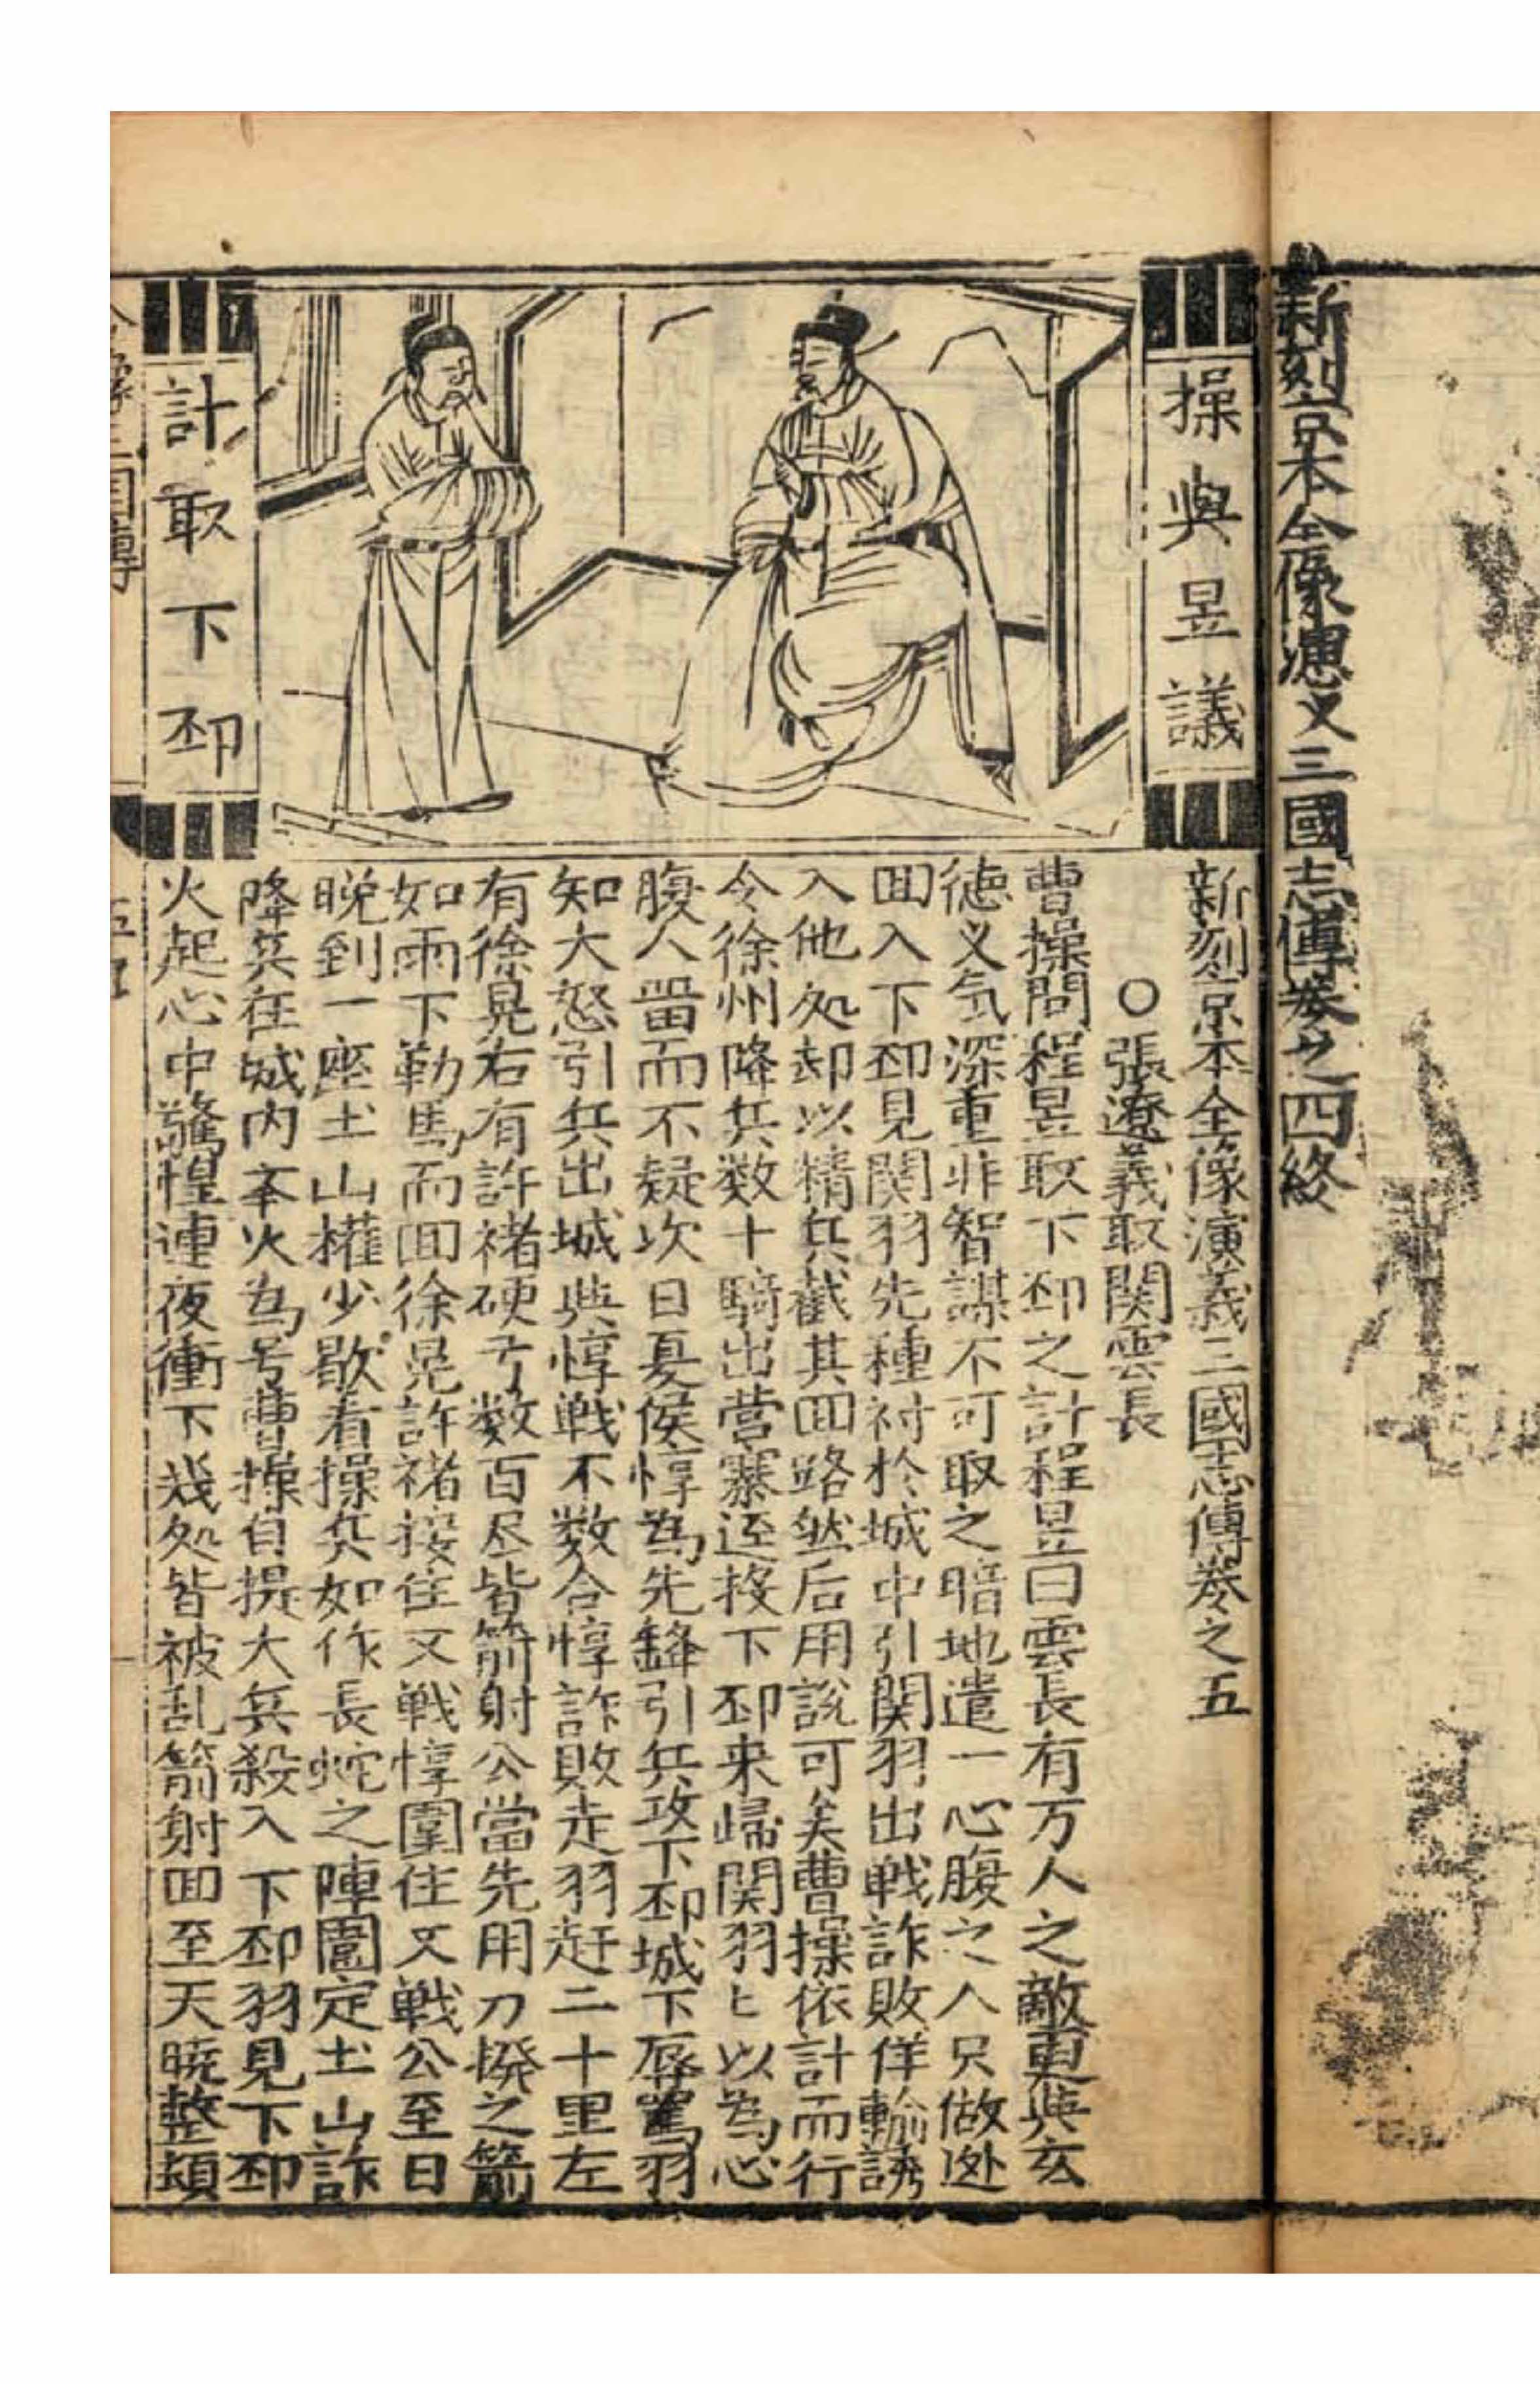 新刻京本全像演义三國志傳卷之四終
操與昱議
計取下邳
新刻京本全像演義三國志傳卷之五
○張遼義取関雲長
曹操問程昱取下邳之計程昱曰雲長有万人之敵更與玄
徳义気深重非智謀不可取之暗地遣一心腹之人只做迯
囬入下邳見関羽先種衬於城中引関羽出戦詐敗佯輸誘
入他処却以精兵截其囬路然后用説可矣曹操依計而行
令徐州降兵数十騎出营寨逕投下邳来歸関羽匕以為心
腹人畱而不疑次日夏侯惇為先鋒引兵攻下邳城下辱罵羽
知大怒引兵出城與惇戦不数合惇詐敗走羽赶二十里左
有徐晃右有許禇硬弓数百尽皆箭射公當先用刀撥之箭
如雨下勒馬而囬徐晃許禇接住又戦惇圍住又戦公至日
晚到一座土山權少歇看操兵如作長蛇之陣圍定土山詐
降兵在城内牵火為号曹操自提大兵殺入下邳羽見下邳
火起心中驚惶連夜衝下幾処皆被乱箭射囬至天暁整頓